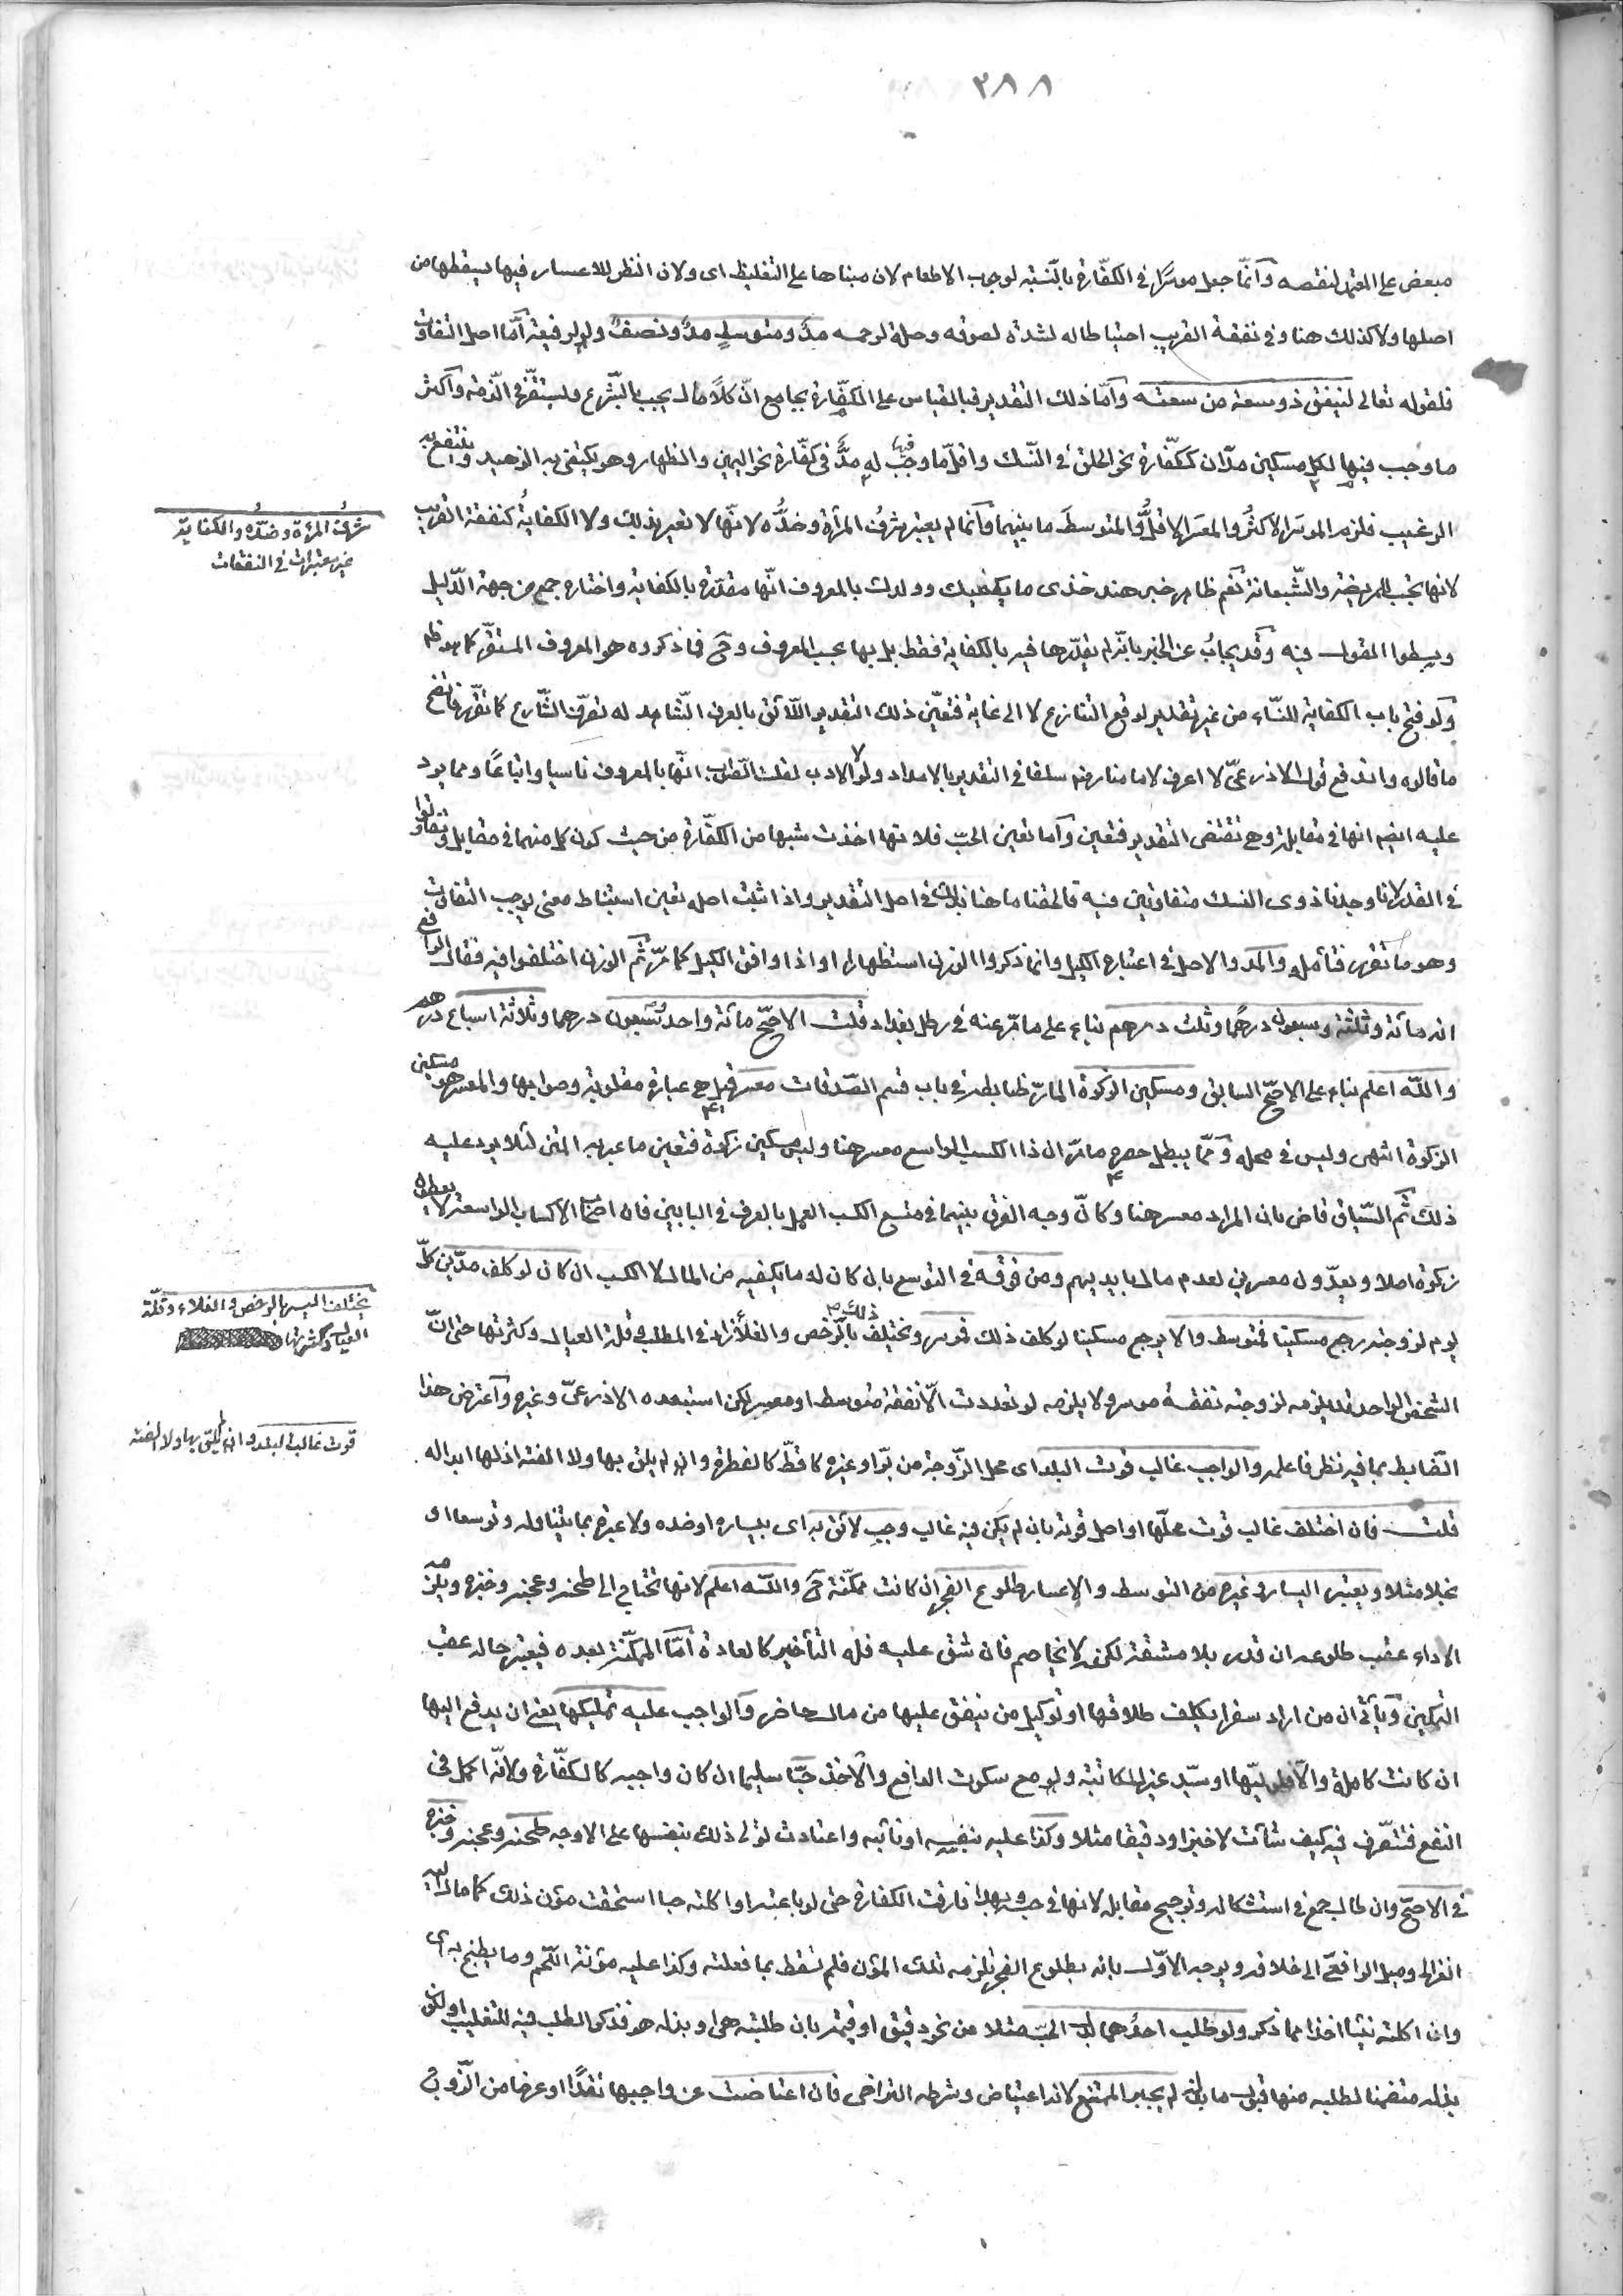 ٣٨٨
مبعض على المعتمد لنقصه وانّما جعل موسرًا في الكفّارة بالنّسبة لوجوب الاطعام لان مبناها على التغليظ اى ولان النظر للاعسار فيها يسقطها من
اصلها ولا كذلك هنا وفي نفقة القريب احتياطا له لشدة لصوقه وصلة لرحمه مدّ ومتوسط مدّ ونصف ولو لرفيعة امّا اصل التفاوت
فلقوله تعالى لينفق ذو سعة من سعته وامّا ذلك التقدير فبالقياس على الكفّارة بجامع انّ كلًا مال يجب بالشّرع ويستقرّ في الذّمة واكثر
ما وجب فيها لكل مسكين مدّان ككفّارة نحو الحلق في النّسك واقلّ ما وجب فيها له مدّ في كفّارة نحو اليمين والظهار وهو يكتفى به الزهيد وينتفع به
الرغيب فلزم الموسر الاكثر والمعسر الاقلّ والمتوسط ما بينهما وانّما لم يعتبر شرف المرأة وضدّه لانّها لا تعير بذلك ولا الكفاية كنفقة القريب
شرف المرأة وضدّه والكفاية
غير معتبرات في النفقات
لانها تجب للمريضة والشّبعانة نعم ظاهر خبر هند خذى ما يكفيك وولدك بالمعروف انّها مقدّرة بالكفاية واختاره جمع من جهة الدّليل
وبسطوا القول فيه وقد يجاب عن الخبر بانّه لم يقدّرها فيه بالكفاية فقط بل بها بحسب المعروف وح فما ذكروه هو المعروف المستقرّ كما هو ظ
ولو فتح باب الكفاية للنّساء من غير تقدير لوقع التنازع لا الى غاية فتعيّن ذلك التقدير اللّائق بالعرف الشّاهد له تصرّف الشّارع كما تقرّر فاتضح
ما قالوه واندفع قول الاذرعىّ لا اعرف لامامنا رضه سلفا في التقدير بالامداد ولولا الادب لقلت الصّواب انّها بالمعروف تاسيا واتباعًا ومما يرد
عليه ايضا انها في مقابلة وهى تقتضى التقدير فتعين واما تعين الحبّ فلانها اخذت شبها من الكفّارة من حيث كون كل منهما في مقابل وتفاوتوا
في القدر لانا وجدنا ذوى النسك متفاوتين فيه فالحقنا ما هنا بذلك في اصل التقدير واذا ثبت اصله تعين استنباط معنى يوجب التفاوت
وهو ما تقرر فتأمله والمد والاصل في اعتباره الكيل وانما ذكروا الوزن استظهارا او اذا وافق الكيل كما مرّ ثم الوزن اختلفوا فيه فقال الرافعى
انه مائة وثلثة وسبعون درهمًا وثلث درهم بناء على ما مرّ عنه في رطل بغداد قلت الاصحّ مائة واحد وسبعون درهما وثلاثة اسباع درهم
والله اعلم بناء على الاصحّ السابق ومسكين الزكوة المارّ ضابطه في باب قسم الصّدقات معسر قيل هى عبارة مقلوبة وصوابها والمعسر هو مسكين
الزكوة انتهى وليس في محله وممّا يبطل حصره ما مرّ ان ذا الكسب الواسع معسر هنا وليس مسكين زكوة فتعين ما عبر به المتن لئلا يرد عليه
ذلك ثم السّياق قاض بان المراد معسر هنا وكانّ وجه الفرق بينهما في متسع الكسب العمل بالعرف في البابين فان اصحاب الاكساب الواسعة لا يعطون
زكوة اصلا ويعدّون معسرين لعدم مال بايديهم ومن فوقه في التوسع بان كان له ما يكفيه من المال لا الكسب ان كان لو كلف مدّين كلّ
يوم لزوجته رجع مسكينا فمتوسط والا يرجع مسكينا لو كلف ذلك فموسر ويختلف ذلك بالرّخص والغلاء زاد في المطلب وقلة العيال وكثرتها حتى انّ
يختلف اليسر بالرخص والغلاء وقلّة
العيال وكثرتها
الشخص الواحد قد يلزمه لزوجته نفقة موسر ولا يلزمه لو تعددت الّا نفقة متوسط او معسر لكن استبعده الاذرعىّ وغيره واعترض هذا
الضّابط بما فيه نظر فاعلمه والواجب غالب قوت البلد اى محل الزّوجة من برّ او غيره كاقطّ كالفطرة وان لم يلق بها ولا الفته اذ لها ابداله
قوت غالب البلد وان لم يلق بها ولا الفته
قلت فان اختلف غالب قوت محلّها او اصل قوته بان لم يكن فيه غالب وجب لائق به اى بيساره او ضده ولا عبرة بما يتناوله توسعا او
بخلا مثلا ويعتبر اليسار وغيره من التوسط والاعسار طلوع الفجر ان كانت ممكّنة ح والله اعلم لانها تحتاج الى طحنه وعجنه وخبزه ويلزمه
الاداء عقب طلوعه ان قدر بلا مشقة لكنه لا يخاصم فان شق عليه فله التأخير كالعادة امّا الممكّنة بعده فيعتبر حاله عقب
التمكين ويأتى ان من اراد سفرا يكلف طلاقها او توكيل من ينفق عليها من مال حاضر والواجب عليه تمليكها يعنى ان يدفع اليها
ان كانت كاملة والّا فلوليّها او سيّد غير المكاتبة ولو مع سكوت الدافع والآخذ حبّا سليما ان كان واجبه كالكفّارة ولانّه اكمل في
النفع فتتصرّف فيه كيف شآئت لا خبزا ودقيقا مثلا وكذا عليه بنفسه او نائبه واعتادت تولى ذلك بنفسها على الاوجه طحنه وعجنه وخبزه
في الاصحّ وان طال جمع في استشكاله وترجيح مقابله لانها في حبسه وبهذا فارقت الكفارة حتى لو باعته او اكلته حبا استحقت مؤن ذلك كما مال اليه
الغزالى وميل الرافعىّ الى خلافه ويوجه الاوّل بانه بطلوع الفجر تلزمه تلك المؤن فلم تسقط بما فعلته وكذا عليه مؤنة اللحم وما يطبخ به اى
وان اكلته نيئا اخذا مما ذكر ولو طلب احدهما بدل الحبّ مثلا من نحو دقيق او قيمة بان طلبته هى او بذله هو فذكر الطلب فيه للتغليب او لكون
بذله متضمنا لطلبه منها قبول ما بذله لم يجبر الممتنع لانه اعتياض وشرطه التراضى فان اعتاضت عن واجبها نقدًا او عرضا من الزّوج